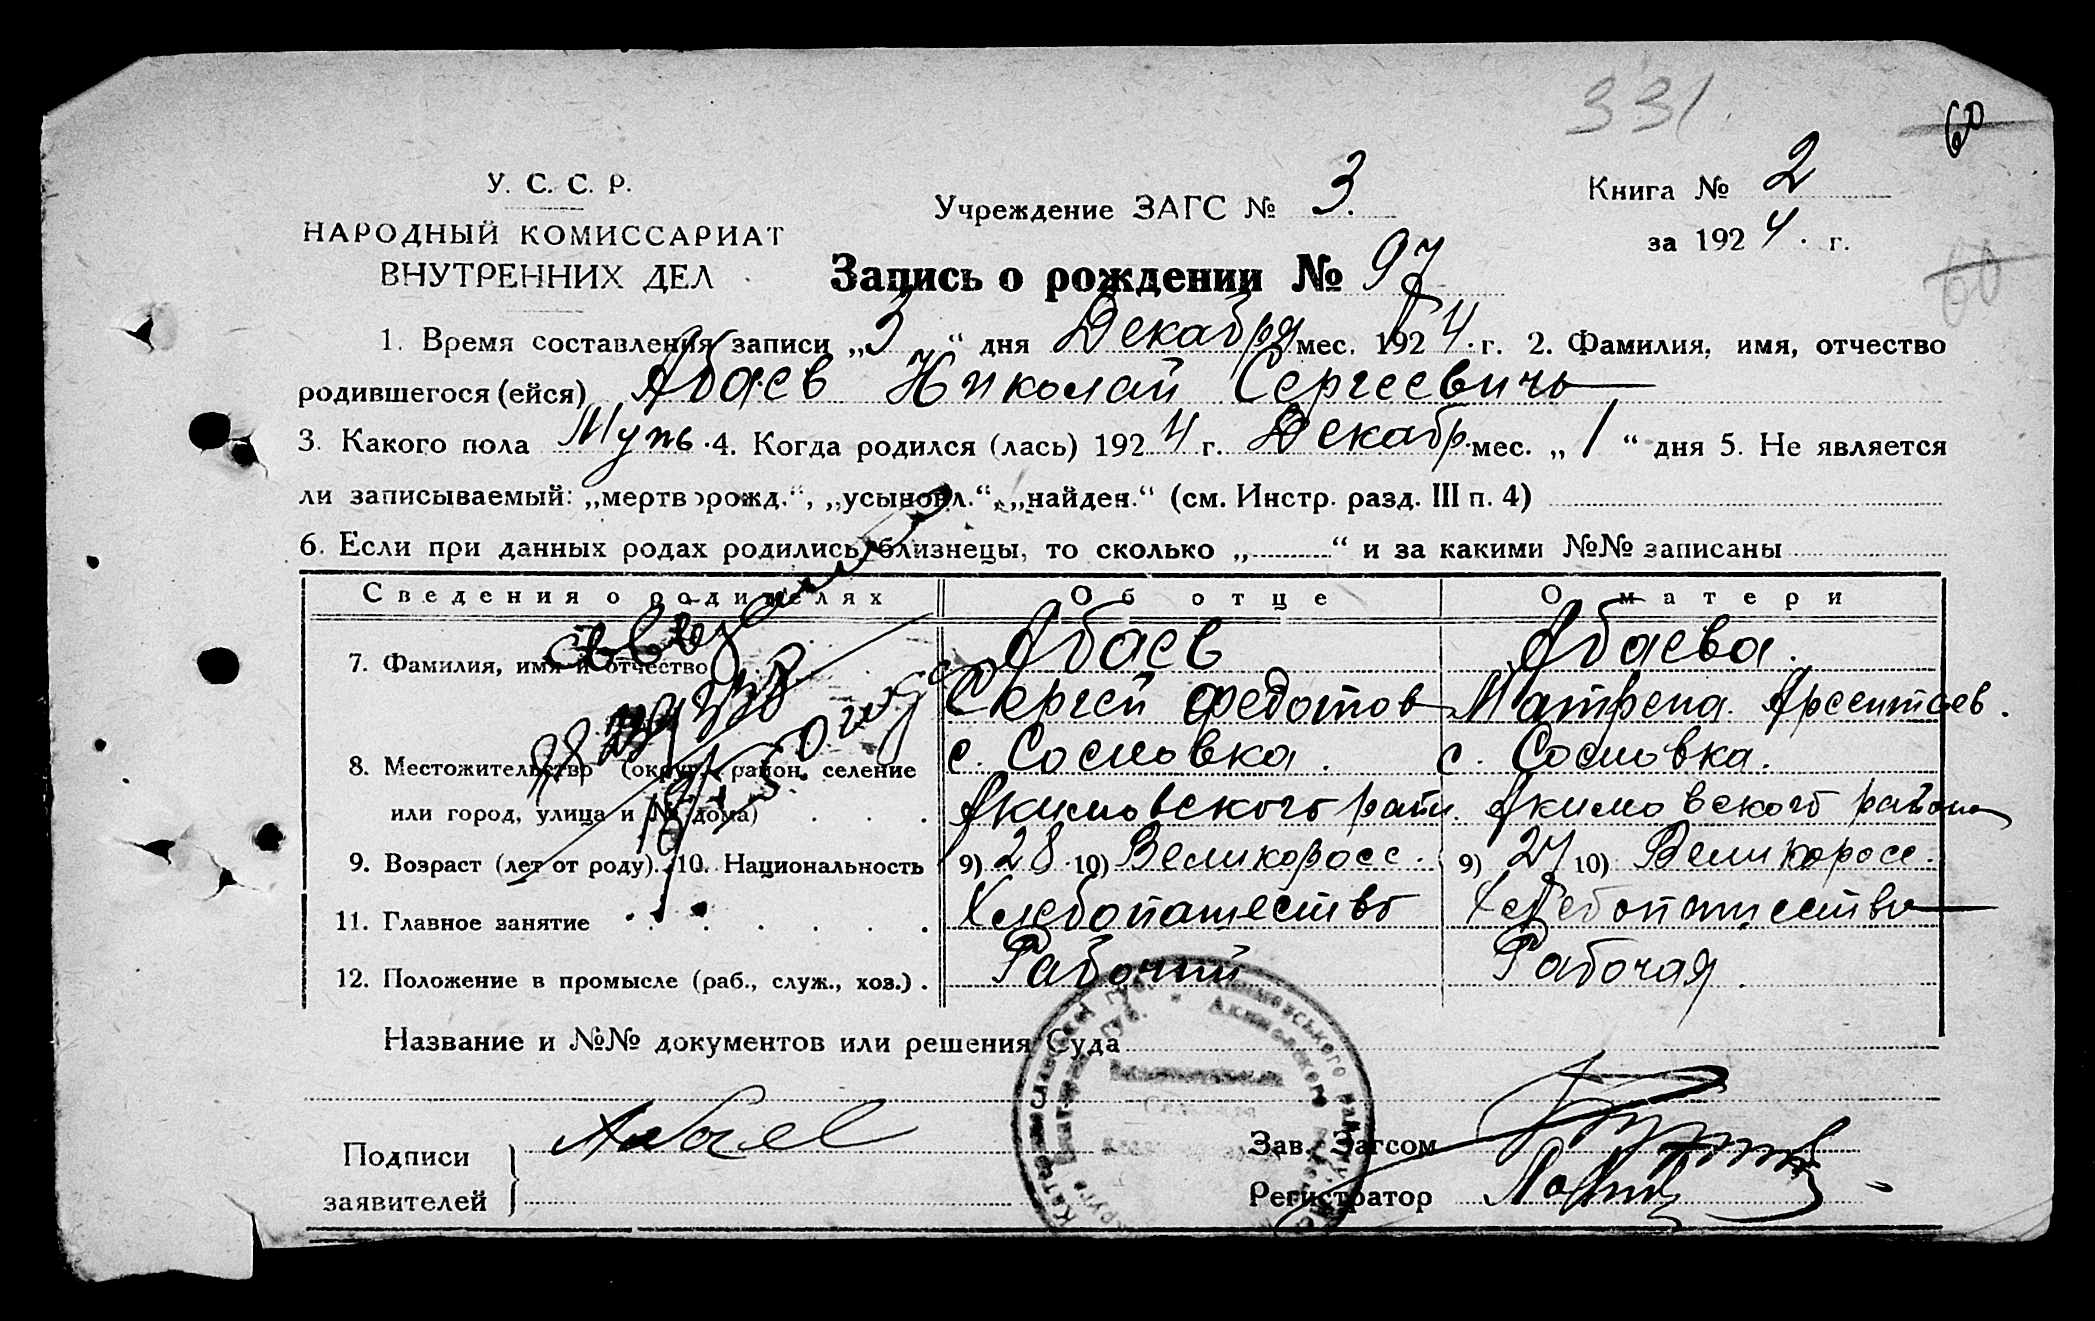 331.
60
У. С. С. Р.
НАРОДНЫЙ КОМИССАРИАТ
ВНУТРЕННИХ ДЕЛ
Учреждение ЗАГС № 3.
Книга № 2
за 1924. г.
60
Запись о рождении № 97
1. Время составления записи „3“ дня Декабря мес. 1924.г. 2. Фамилия, имя, отчество
родившегося (ейся) Абаев Николай Сергеевичъ
3. Какого пола Муж. 4. Когда родился (лась) 1924 г. Декабр. мес. „1“ дня 5. Не является
ли записываемый: „мертворожд.“, „усыновл.“, „найден.“ (см. Инстр. разд. III п. 4)
6. Если при данных родах родились близнецы, то сколько „..........“ и за какими №№ записаны
Сведения о родителях Об отце О матери
7. Фамилия, имя и отчество Абаев Абаева.
Сергей Федотов Матрена Арсентьев.
8. Местожительство (округ, район, селение с. Сосновка. с. Сосновка.
или город, улица и № дома) Акимовского райн. Акимовского района
9. Возраст (лет от роду). 10. Национальность 9) 28 10) Великоросс. 9) 27 10) Великоросс.
11. Главное занятие Хлебопашество Хлебопашество
12. Положение в промысле (раб., служ., хоз.) Рабочий Рабочая.
Название и №№ документов или решения Суда
Подписи
заявителей
Абаев
Зав. Загсом
Регистратор